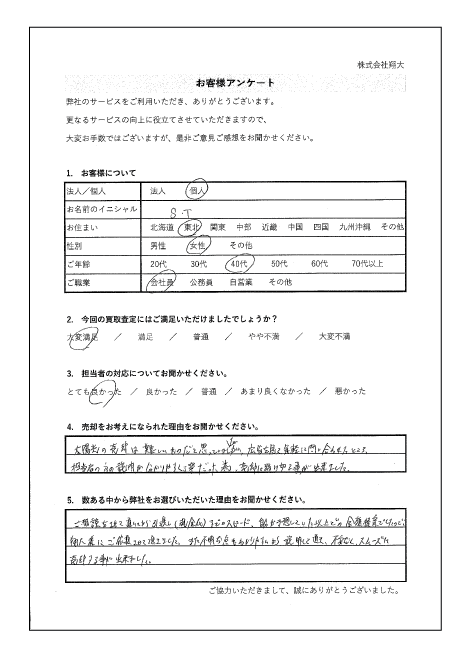 株式会社翔大
お客様アンケート
弊社のサービスをご利用いただき、ありがとうございます。
更なるサービスの向上に役立てさせていただきますので、
大変お手数ではございますが、是非ご意見ご感想をお聞かせください。
1. お客様について
法人／個人 法人 個人
お名前のイニシャル S.T
お住まい 北海道 東北 関東 中部 近畿 中国 四国 九州沖縄 その他
性別 男性 女性 その他
ご年齢 20代 30代 40代 50代 60代 70代以上
ご職業 会社員 公務員 自営業 その他
2. 今回の買取査定にはご満足いただけましたでしょうか？
大変満足 ／ 満足 ／ 普通 ／ やや不満 ／ 大変不満
3. 担当者の対応についてお聞かせください。
とても良かった ／ 良かった ／ 普通 ／ あまり良くなかった ／ 悪かった
4. 売却をお考えになられた理由をお聞かせください。
太陽光の売却は難しいものだと思って
担当者の 説明が 為、 出来ました。
5. 数ある中から弊社をお選びいただいた理由をお聞かせください。
ご相談させて までのスピード、 以上での金額提示でしたので
購入者に 不明な点も 説明して スムーズに
売却する事に出来ました。
ご協力いただきまして、誠にありがとうございました。